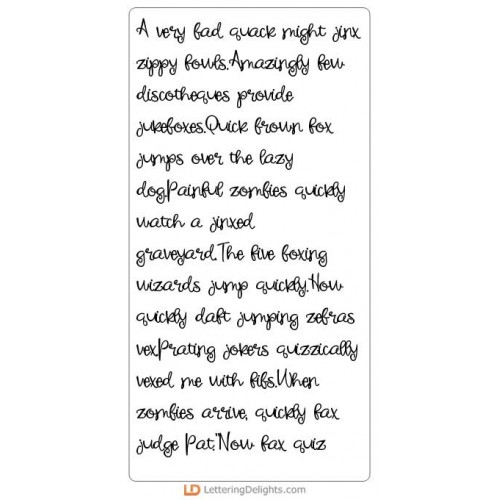 A very bad quack might jinx
zippy fowls.Amazingly few
discotheques provide
jukeboxes.Quick brown fox
jumps over the lazy
dog.Painful zombies quickly
watch a jinxed
graveyard.The five boxing
wizards jump quickly."How
quickly daft jumping zebras
vex.Prating jokers quizzically
vexed me with fibs.When
zombies arrive, quickly fax
judge Pat."Now fax quiz
LD LetteringDelights.com